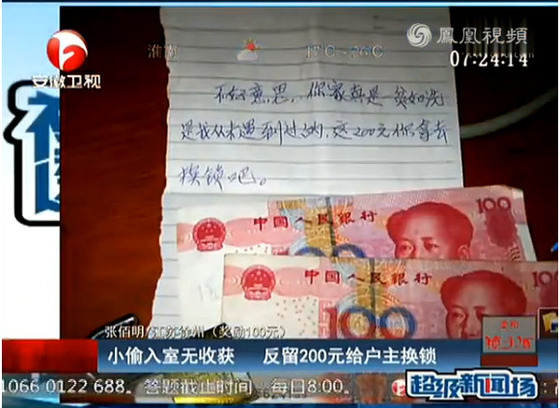 安徽卫视
淮南
17℃~26℃
鳳凰視頻
07:24:14
不好意思，你家真是一贫如洗
是我从未遇到过的，这200元你拿去
换锁吧。
中国人民银行
100
中国人民银行
100
100
张佰明/江苏徐州（奖励100元）
小偷入室无收获 反留200元给户主换锁
1066 0122 688. 答题截止时间 每日8:00.
超级新闻场